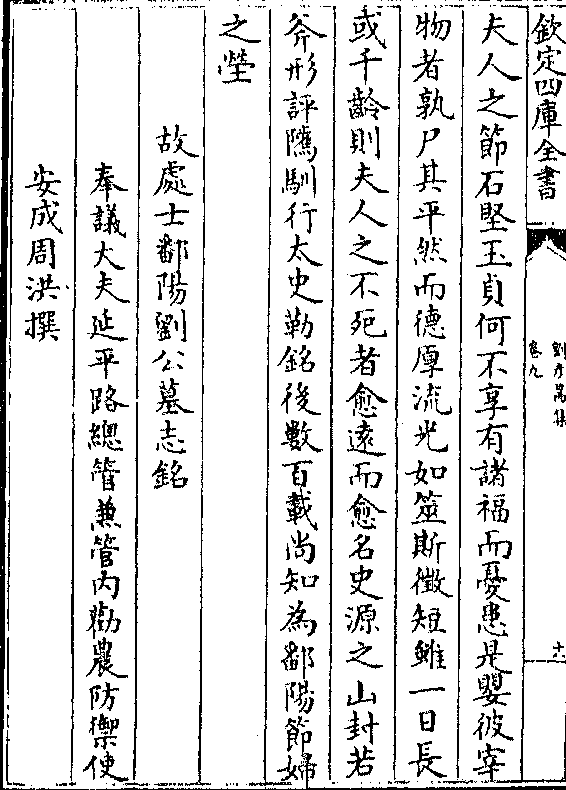 欽定四庫全書
劉彦昺集
卷九
十一
夫人之節石堅玉貞何不享有諸福而憂患是嬰彼宰
物者孰尸其平然而德厚流光如筮斯徵短雖一日長
或千齡則夫人之不死者愈遠而愈名史源之山封若
斧形評隲馴行太史勒銘後數百載尚知為鄱陽節婦
之塋
故處士鄱陽劉公墓志銘
奉議大夫延平路總管兼管內勸農防禦使
安成周洪撰